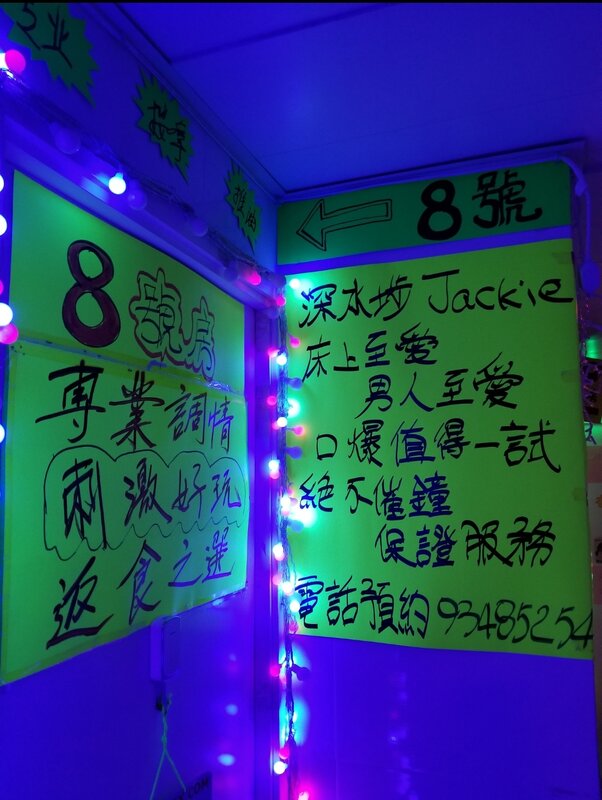 专业
按摩
8號房
専業調情
刺激好玩
返食之選
8號
深水埗 Jackie
床上至愛
男人至愛
口爆值得一試
絕不催鐘
保證服務
電話預約 93485254